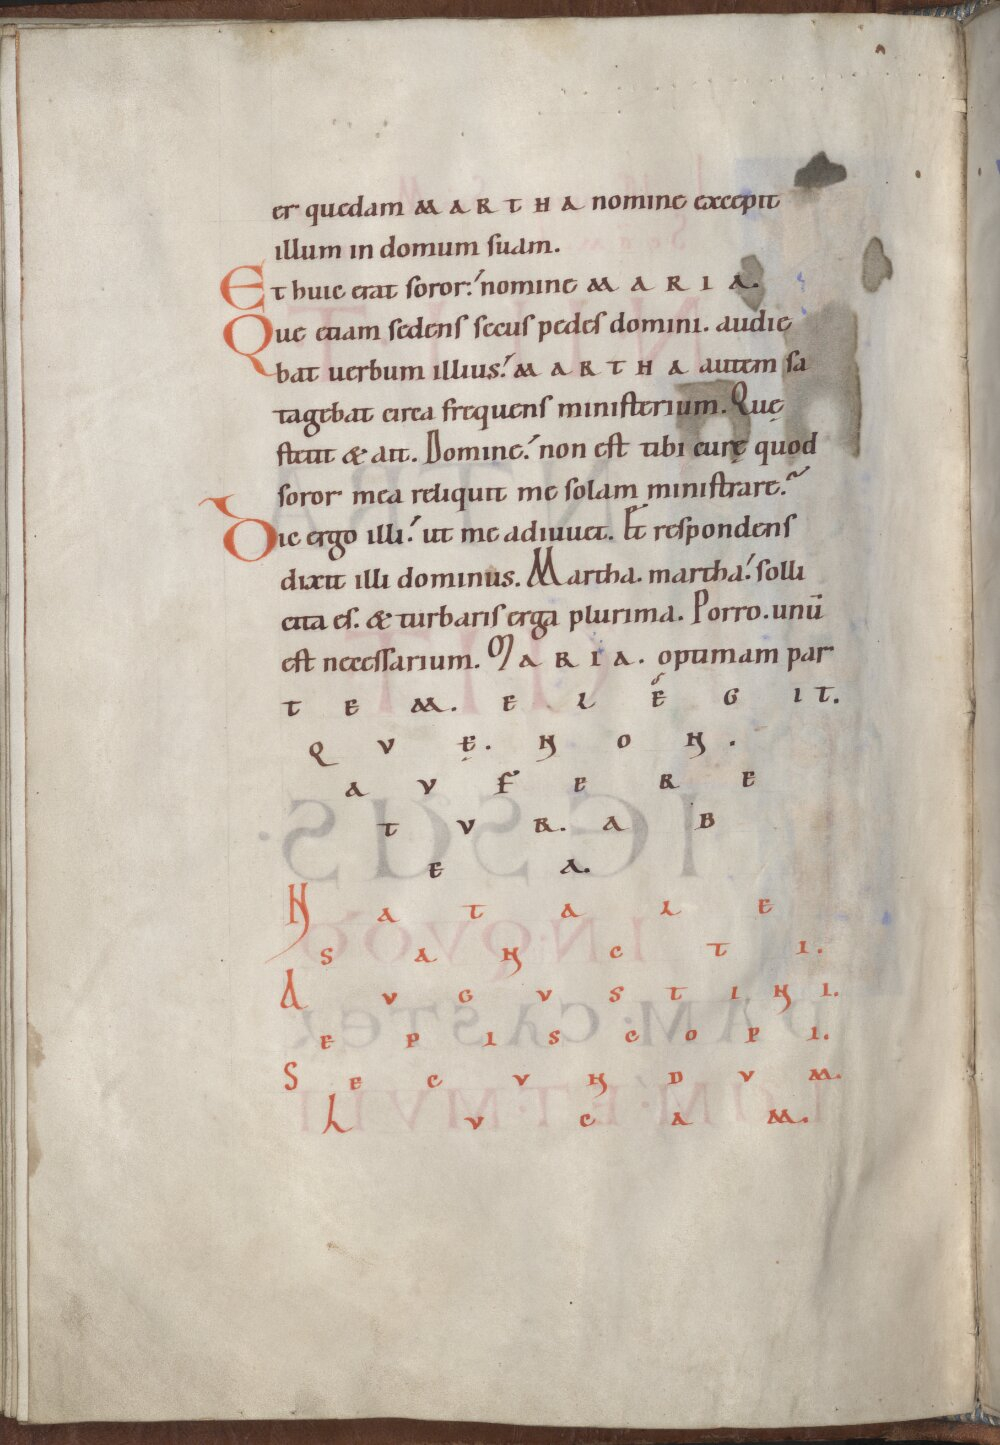 er quedam MARTHA nomine excepit
illum in domum suam.
Et huic erat soror: nomine MARIA.
Que etiam sedens secus pedes domini. audie
bat uerbum illius: MARTHA autem sa
tagebat circa frequens ministerium. Quę
stetit & ait. Domine: non est tibi curę quod
soror mea reliquit me solam ministrare?
Dic ergo illi: ut me adiuuet. Et respondens
dixit illi dominus. Martha. martha: solli
cita es. & turbaris erga plurima. Porro. unū
est necessarium. MARIA. optimam par
TEM. ELEGIT.
QVĘ. NON.
AVFERE
TVR. AB
EA.
NATALE
SANCTI.
AVGVSTINI.
EPISCOPI.
SECVNDVM.
LVCAM.